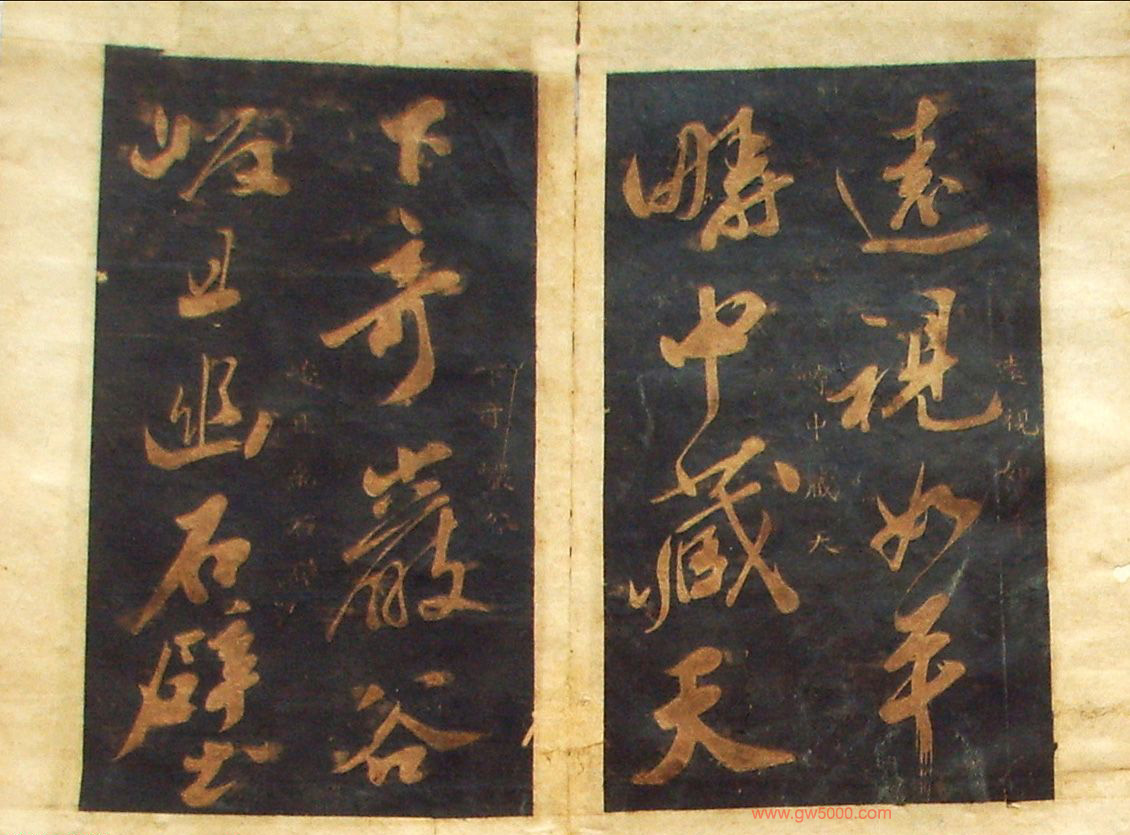 遠視如平
遠視如平
疇中藏天
疇中藏天
下奇巖谷
下奇巖谷
且幽石壁
石壁
www.gw5000.com